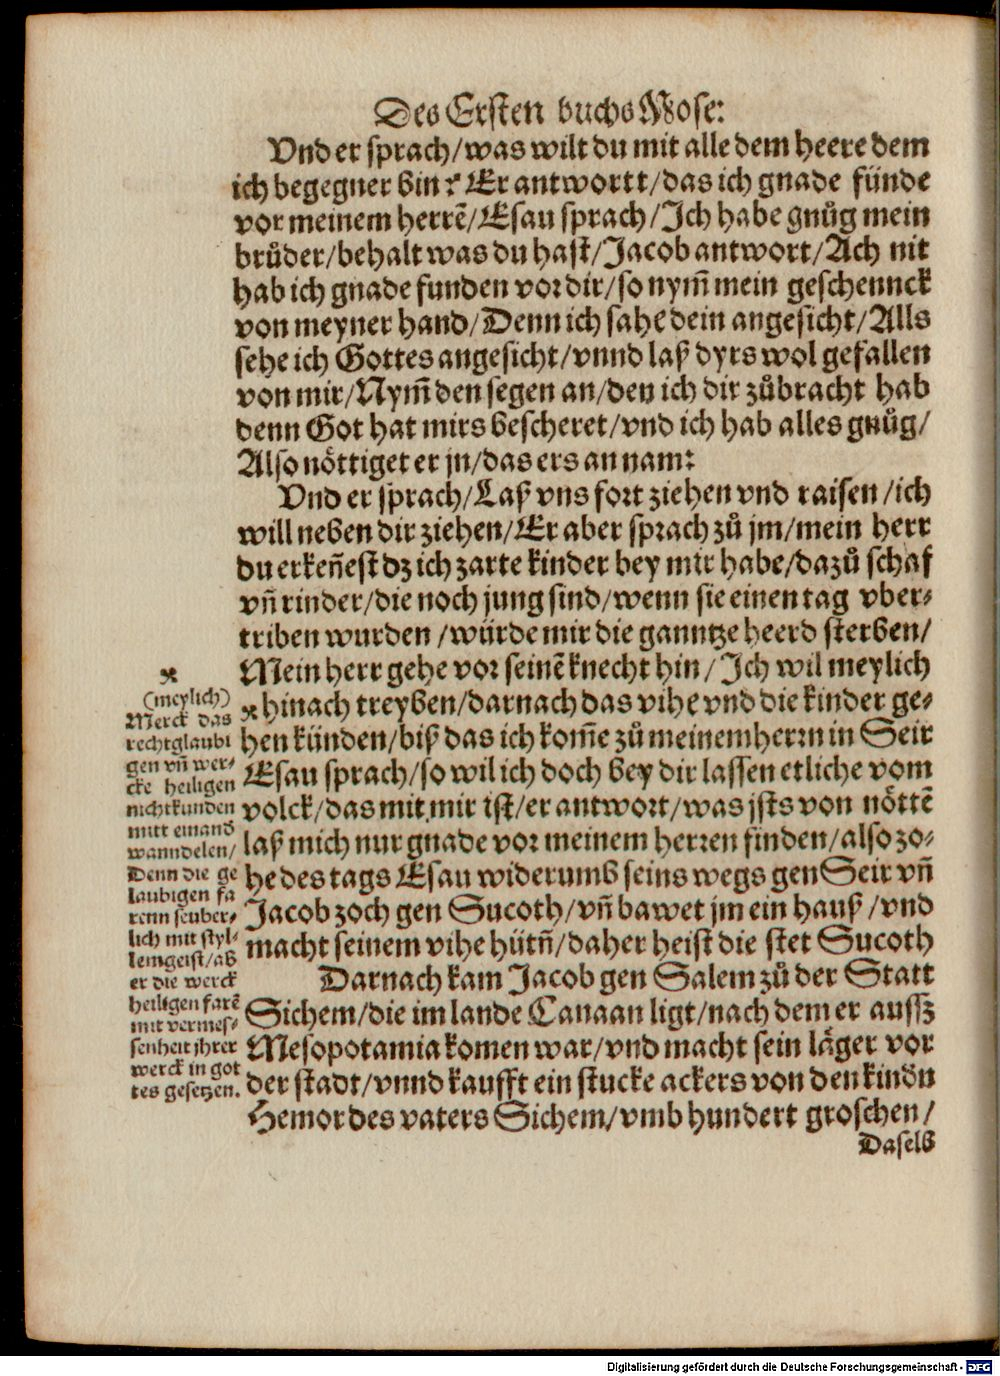 Des Ersten buchs Mose:
Vnd er sprach/was wilt du mit alle dem heere dem
ich begegnet bin? Er antwortt/das ich gnade fünde
vor meinem herrē/Esau sprach/Ich habe gnůg mein
brůder/behalt was du hast/Jacob antwort/Ach nit
hab ich gnade funden vor dir/so nym̄ mein geschennck
von meyner hand/Denn ich sahe dein angesicht/Alls
sehe ich Gottes angesicht/vnnd laß dyrs wol gefallen
von mir/Nym̄ den segen an/den ich dir zůbracht hab
denn Got hat mirs bescheret/vnd ich hab alles gnůg/
Also nöttiget er jn/das ers an nam:
Vnd er sprach/Laß vns fort ziehen vnd raisen/ich
will neben dir ziehen/Er aber sprach zů jm/mein herr
du erkeñest dz ich zarte kinder bey mir habe/dazů schaf
vñ rinder/die noch jung sind/wenn sie einen tag vber-
triben wurden/würde mir die ganntze heerd sterben/
Mein herr gehe vor seinē knecht hin/Ich wil meylich
¤ hinach treyben/darnach das vihe vnd die kinder ge-
hen künden/biß das ich kom̄e zů meinem herrn in Seir
Esau sprach/so wil ich doch bey dir lassen etliche vom
volck/das mit mir ist/er antwort/was ists von nöttē
laß mich nur gnade vor meinem herren finden/also zo-
he des tags Esau widerumb seins wegs gen Seir vñ
Jacob zoch gen Sucoth/vñ bawet jm ein hauß/vnd
macht seinem vihe hütñ/daher heist die stet Sucoth
Darnach kam Jacob gen Salem zů der Statt
Sichem/die im lande Canaan ligt/nach dem er aussz
Mesopotamia komen war/vnd macht sein läger vor
der stadt/vnnd kaufft ein stucke ackers von den kindn
Hemor des vaters Sichem/vmb hundert groschen/
Daselb
¤
(meylich)
Merck das
rechtglaubi
gen vñ wer-
cke heiligen
nicht kunden
mitt einand
wanndelen/
Denn die ge
laubigen fa
renn seuber-
lich mit styl-
lem geist/ab
er die werck
heiligen farē
mit vermes-
senheit jhrer
werck in got
tes gesetzen.
Digitalisierung gefördert durch die Deutsche Forschungsgemeinschaft - DFG